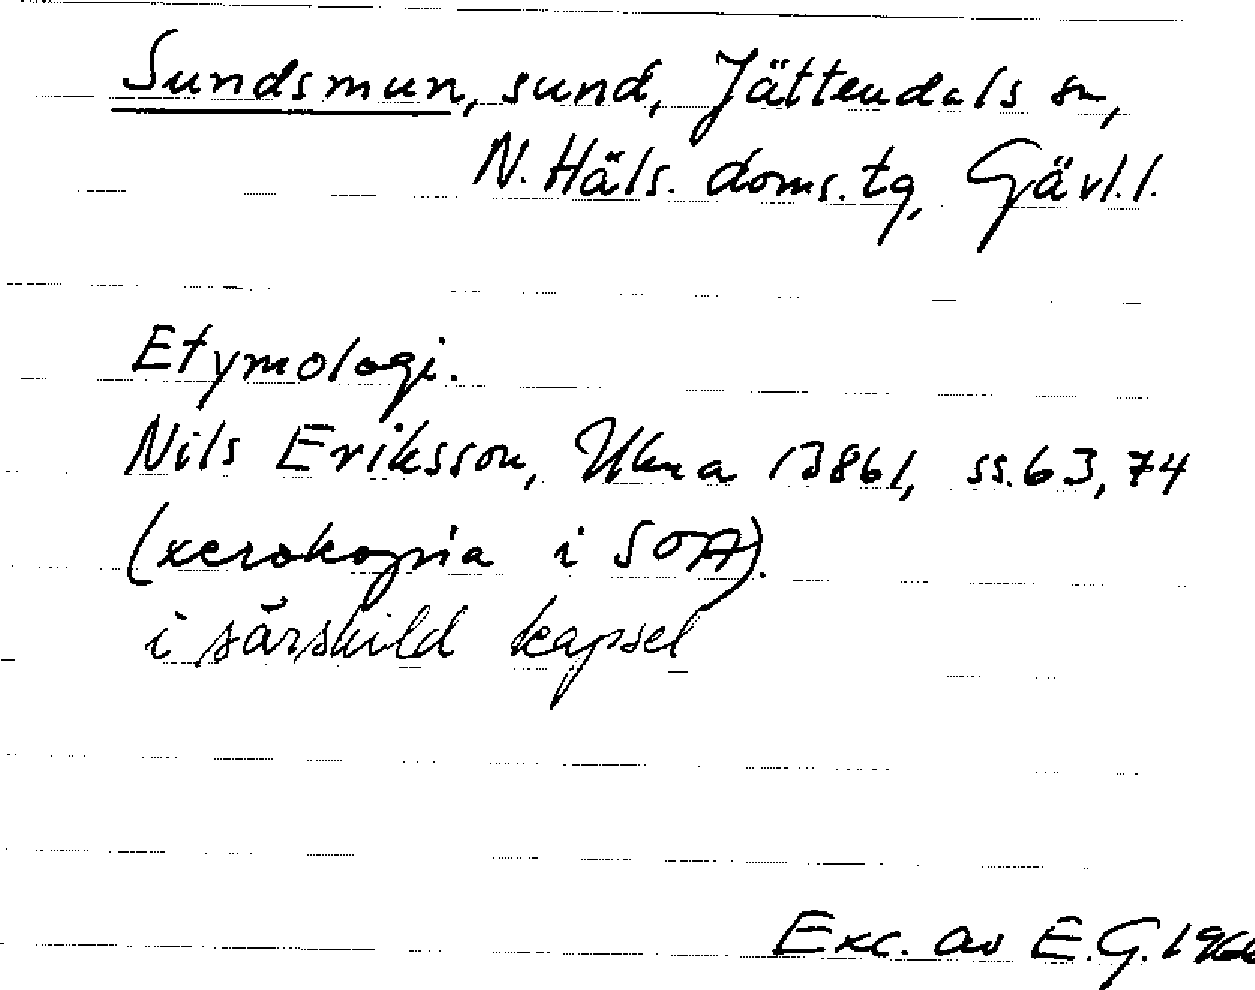 Sundsmun, sund, Jättendals sn,
N. Häls. doms. tg, Gävl. l.
Etymologi.
Nils Eriksson, Ukna 13861, ss. 63, 74
(xerokopia i SOA).
i särskild kapsel
Exc. av E.G. 1966